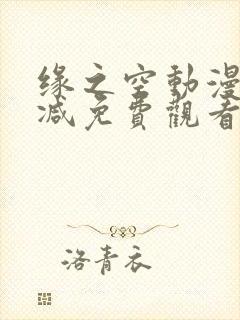 缘之空動漫
减免費觀看
洛青衣